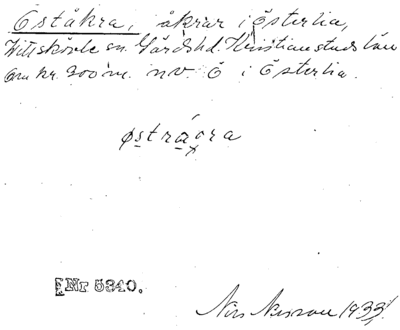 Öståkra, åkrar i Österlia,
Vittskövle sn. Gärds hd. Kristianstads län
Om kr. 300 m. nv. Ö i Österlia.
østrågra
Nr 5340.
Nils Nilsson 1933.